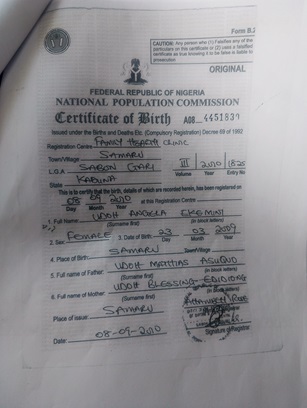 Form B.
CAUTION: Any person who (1) Falsifies any of the
particulars on this certificate or (2) uses a falsified
certificate as true knowing it to be false is liable to
prosecution
ORIGINAL
FEDERAL REPUBLIC OF NIGERIA
NATIONAL POPULATION COMMISSION
Certificate of Birth A08 4451839
Issued under the Births and Deaths Etc. (Compulsory Registration) Decree 69 of 1992
Registration Centre FAMILY HEALTH CLINIC
Town/Village SAMARU
L.G.A. SABON GARI III 2010 1825
Volume Year Entry No
State KADUNA
This is to certify that the birth, details of which are recorded herein, has been registered on
08 09 2010 at this Registration Centre
Day Month Year
1. Full Name UDOH EKEMINI
(Surname first) (in block letters)
2. Sex FEMALE 3. Date of Birth: 23 03 2009
Day Month Year
4. Place of Birth SAMARU
Town/Village
5. Full name of Father: UDOH MATHIAS ASUQUO
(Surname first) (in block letters)
6. Full name of Mother: UDOH BLESSING EDIDIONG
(Surname first) (in block letters)
Place of issue: SAMARU
Signature of Registrar
Date: 08-09-2010